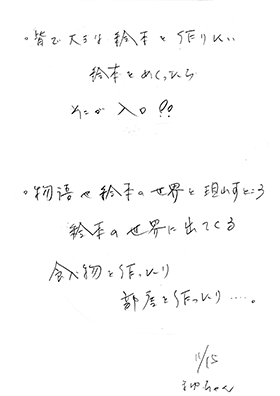 。皆で大きな絵本を作りたい
絵本をめくったら
そこが入口!!
。物語や絵本の世界を現わすところ
絵本の世界に出てくる
食べ物を作ったり
部屋を作ったり……。
11/15